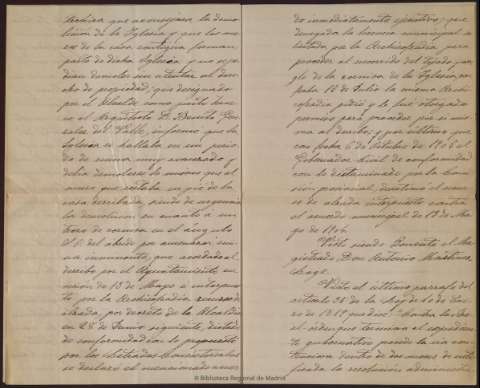 técnica que aconsejara la demo-
lición de la Iglesia y que los mu-
ros de la casa contigua forman
parte de dicha Iglesia y no se po-
dían demoler sin atentar al dere-
cho de propiedad; que designado
por el Alcalde como perito terce-
ro el Arquitecto D. Benito
del Valle, informó que la
se hallaba en un perio-
do de ruina muy avanzado y
debía demolerse
muro que restaba en pie de la
casa derribada, siendo de urgencia
la demolición en cuanto a un
trozo de cornisa en el ángulo
del ábside por amenazar rui-
na inminente, que acordado el
derribo por el Ayuntamiento en
sesión de 18 de Mayo e interpues-
to por la Archicofradía recurso de
alzada, por decreto de la Alcaldía
en 28 de Junio siguiente, dictado
de conformidad con lo propuesto
por los Letrados Consistoriales
se declaró el mencionado acuer-
do inmediatamente ejecutivo; que
denegada la licencia municipal so-
licitada por la Archicofradía para
proceder al recorrido del tejado y arre-
glo de la cornisa de la Iglesia, con
fecha 12 de Julio la misma Archi-
cofradía pidió y le fué otorgado
permiso para proceder por sí mis-
ma al derribo; y por último que
con fecha 6 de Octubre de 1906 el
Gobernador Civil de conformidad
con lo dictaminado por la Comi-
sión provincial, desestimó el recur-
so de alzada interpuesto contra
el acuerdo municipal de 18 de Ma-
yo de 1906.
Visto siendo Ponente el Ma-
gistrado Don Antonio Martínez
Visto el último párrafo del
artículo 38 de la Ley de 10 de Ene-
ro de 1879 que dice: "Contra las
órdenes que terminen el expedien-
te gubernativo procede la vía con-
tenciosa dentro de dos meses de noti-
ficada la resolución administra-
© Biblioteca Regional de Madrid